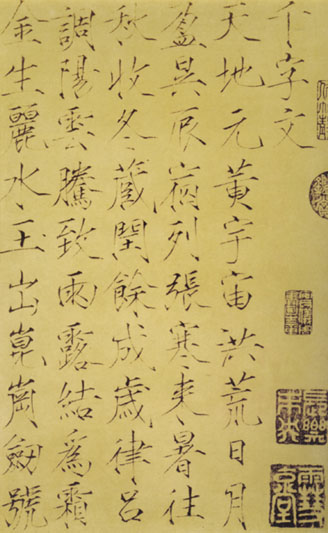 千字文
天地元黃宇宙洪荒日月
盈昃辰宿列張寒来暑往
秋收冬藏閏餘成歲律呂
調陽雲騰致雨露結為霜
金生麗水玉出崑崗劍號